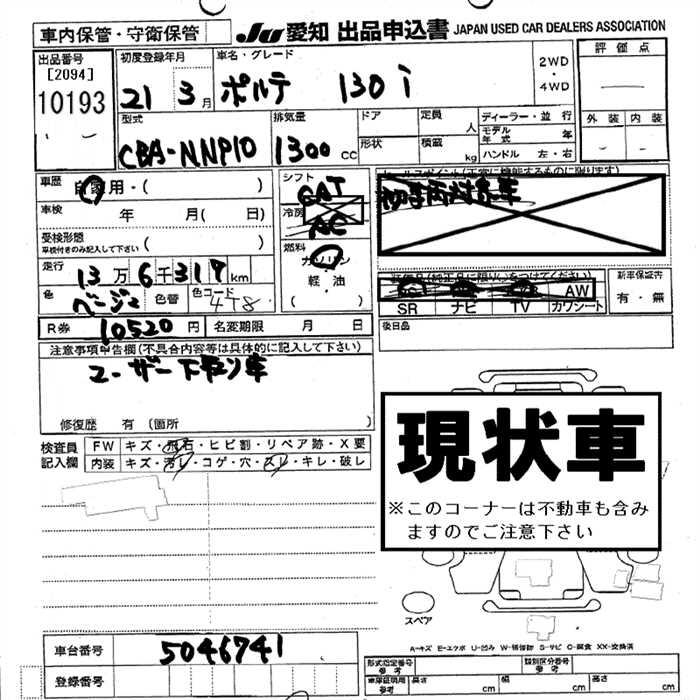 車内保管・守衛保管
JU 愛知 出品申込書 JAPAN USED CAR DEALERS ASSOCIATION
出品番号 [2094] 10193
初度登録年月 21 3月
車名・グレード ポルテ 130i
2WD・4WD
評価点
型式 CBA-NNP10
排気量 1300cc
ドア
定員 人
ディーラー・並行
モデル年式 年
形状
積載 kg
ハンドル 左・右
外装 内装
車歴 自家用・( )
車検 年 月(日)
受検形態 ( )
平検付きのみ記入して下さい
走行 13万6千317km
色 ベージュ 色替 色コード 4T8
R券 10520円 名変期限 月 日
シフト CAT
冷房 AC
燃料 ガソリン
軽油
( )
AW
SR ナビ TV カワシート
新車保証書
有・無
後日品
注意事項申告欄(不具合内容等は具体的に記入して下さい)
ユーザー下取り車
修復歴 有 (箇所 )
検査員記入欄
FW キズ・飛石・ヒビ割・リペア跡・X要
内装 キズ・汚レ・コゲ・穴・スレ・キレ・破レ
現状車
※このコーナーは不動車も含み
ますのでご注意下さい
スペア
A-キズ E-エクボ U-凹み W-補修跡 S-サビ C-腐食 XX-交換済
車台番号 5046741
登録番号
形式指定番号 参考
類別区分番号 参考
車庫証明用 参考 長さ cm 幅 cm 高さ cm